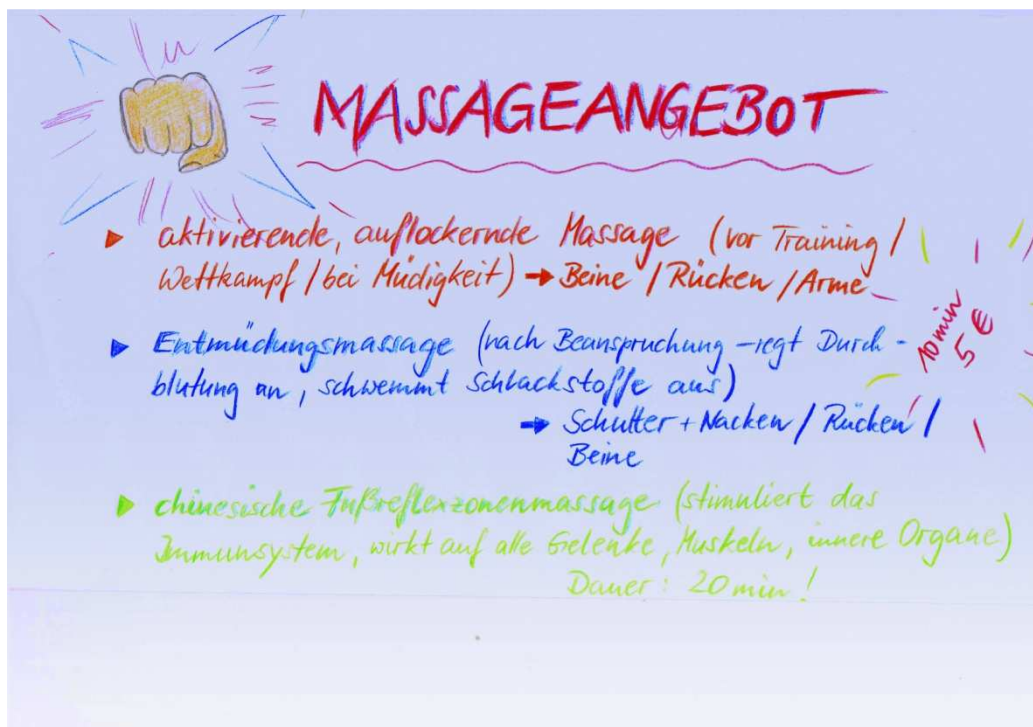 MASSAGEANGEBOT
▸ aktivierende, auflockernde Massage (vor Training /
Wettkampf / bei Müdigkeit) → Beine / Rücken / Arme
10 min
5 €
▸ Entmüdungsmassage (nach Beanspruchung – regt Durch-
blutung an, schwemmt Schlackstoffe aus)
→ Schulter + Nacken / Rücken /
Beine
▸ chinesische Fußreflexzonenmassage (stimuliert das
Immunsystem, wirkt auf alle Gelenke, Muskeln, innere Organe)
Dauer: 20 min!